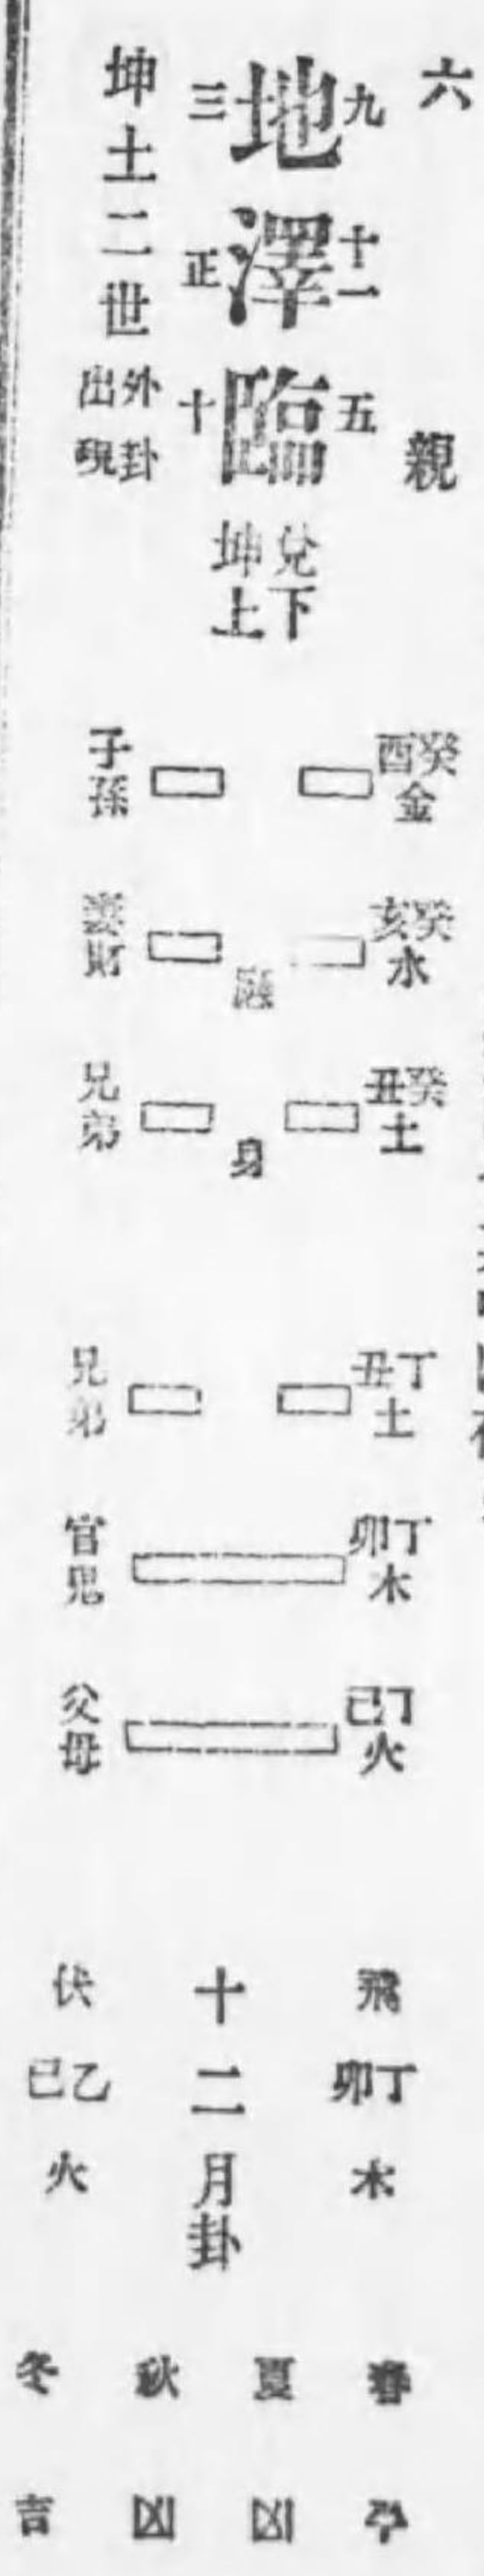 六親
九 十一 五
地澤臨
三 正 十
兌下
坤上
坤土二世
外卦
出現
癸酉金 子孫
癸亥水 應 妻財
癸丑土 身 兄弟
丁丑土 兄弟
丁卯木 官鬼
丁巳火 父母
飛 丁卯 木
十二月卦
伏 乙巳 火
春
夏 凶
秋 凶
冬 吉